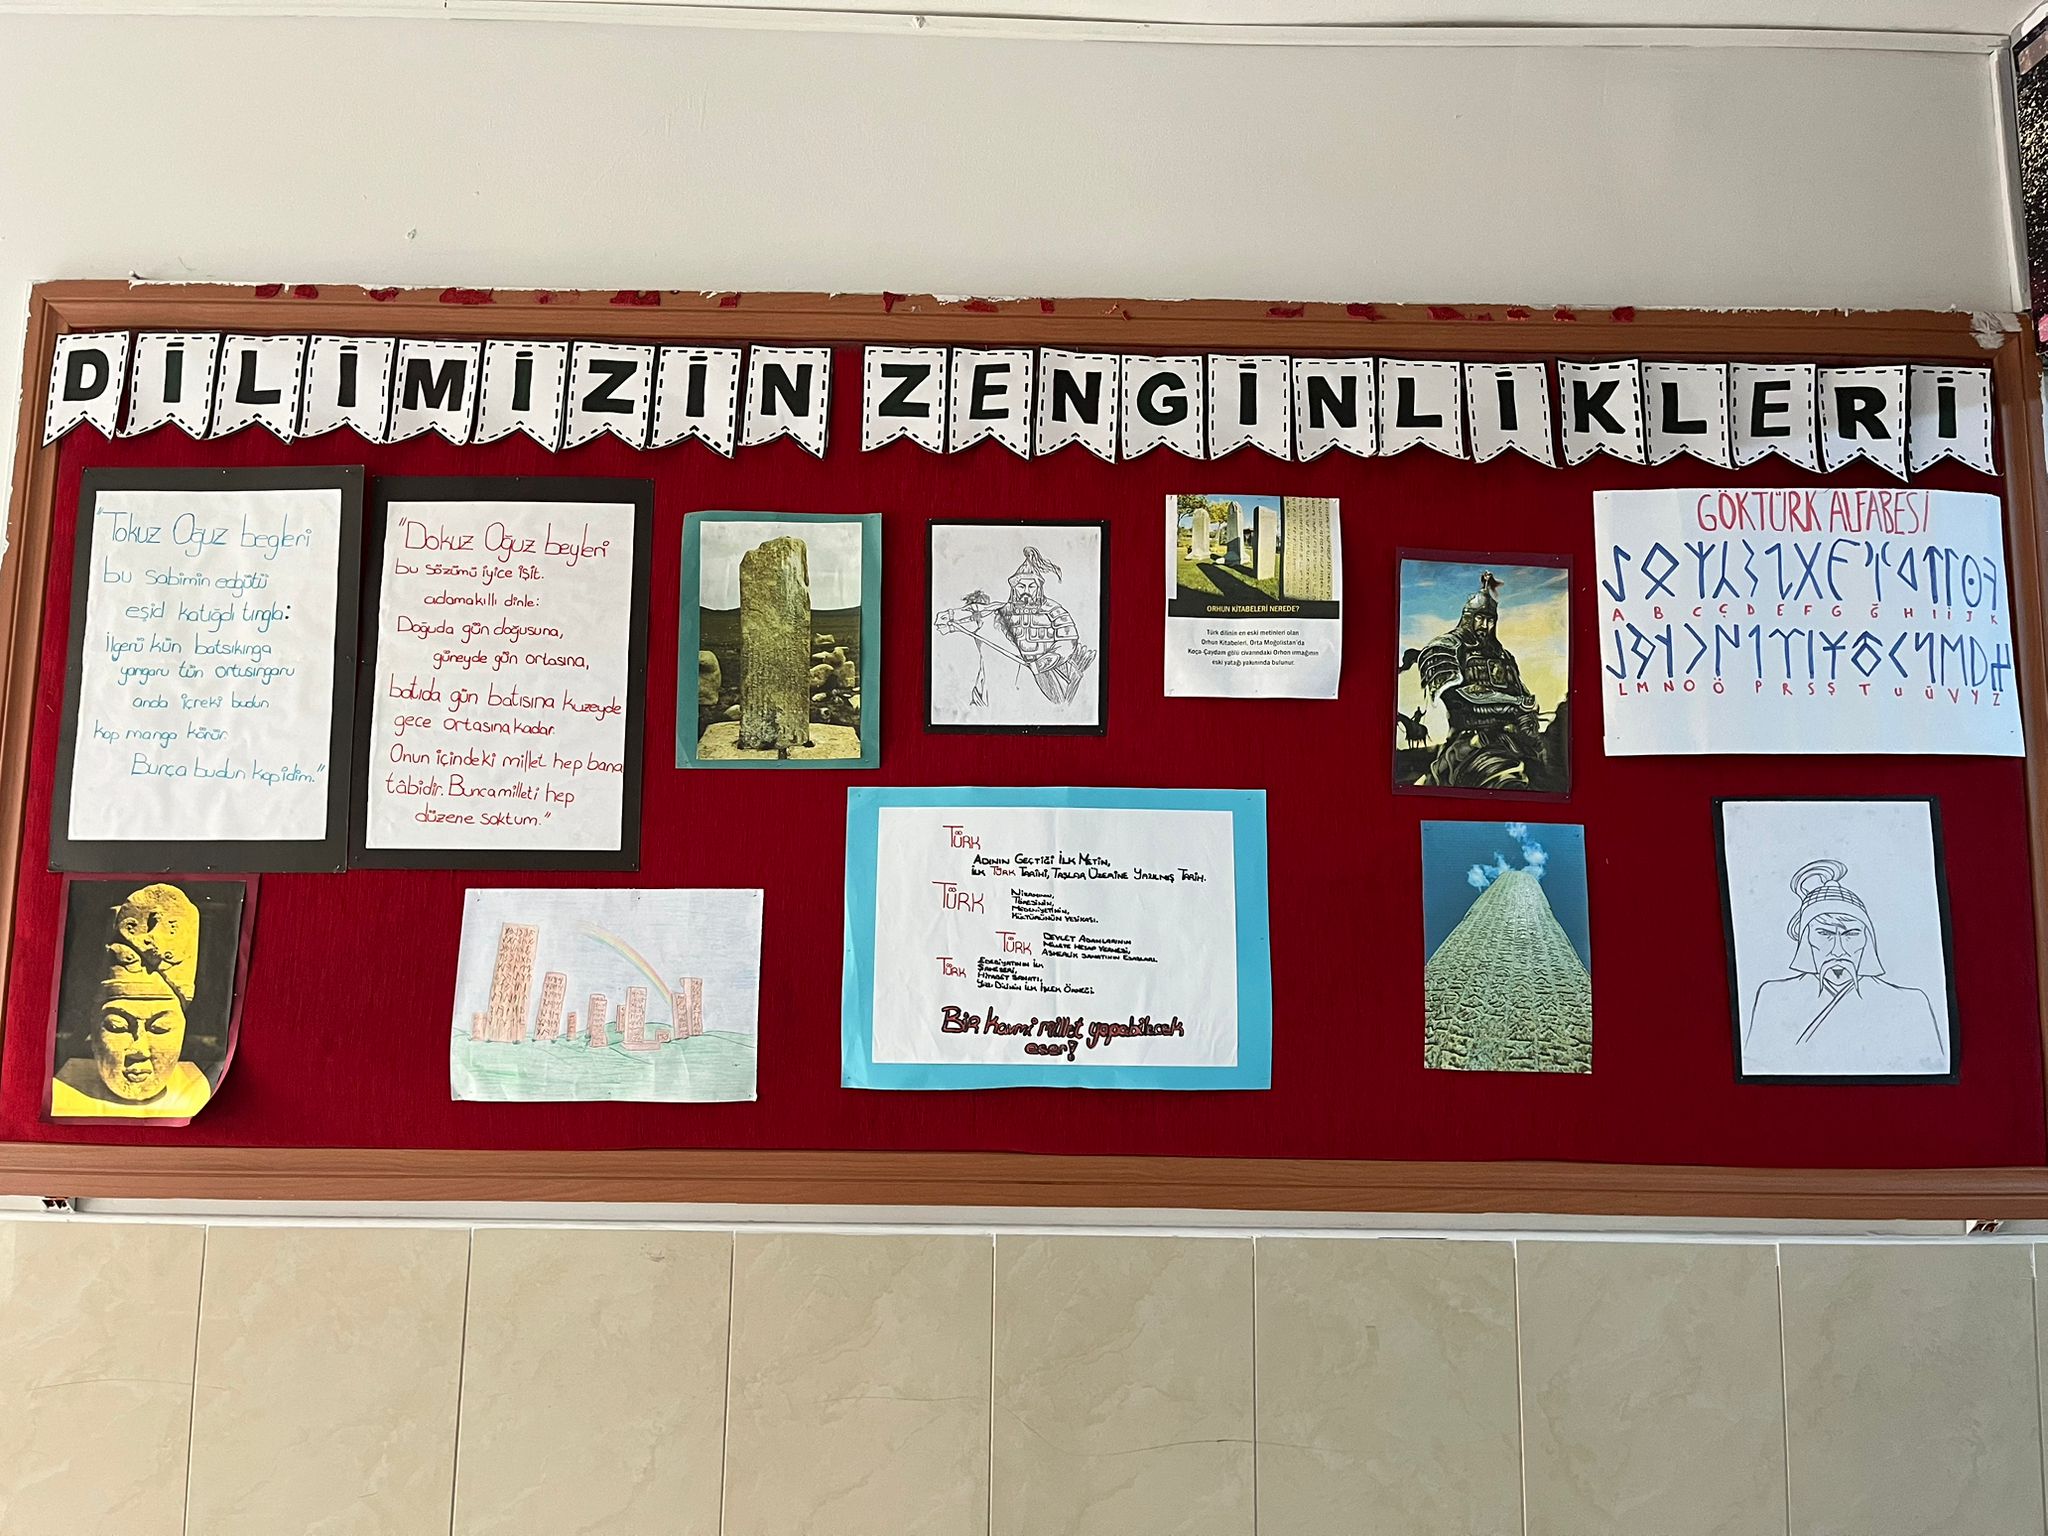 DİLİMİZİN ZENGİNLİKLERİ
"Tokuz Oğuz begleri
bu sabimin edgütü
eşid katıgdı tıngla:
İlgerü kün batsıkınga
yangaru tün ortusıngaru
anda içreki budun
kop manga körür.
Bunça budun kop idim."
"Dokuz Oğuz beyleri
bu sözümü iyice işit.
adamakıllı dinle:
Doğuda gün doğusuna,
güneyde gün ortasına,
batıda gün batısına kuzeyde
gece ortasına kadar.
Onun içindeki millet hep bana
tâbidir. Bunca milleti hep
düzene soktum."
ORHUN KİTABELERİ NEREDE?
Türk dilinin en eski metinleri olan
Orhun Kitabeleri, Orta Moğolistan'da
Koça-Çaydam gölü civarındaki Orhon ırmağının
eski yatağı yakınında bulunur.
GÖKTÜRK ALFABESİ
A B C Ç D E F G Ğ H I İ J K
L M N O Ö P R S Ş T U Ü V Y Z
TÜRK
ADININ GEÇTİĞİ İLK METİN,
İLK TÜRK TARİHİ, TAŞLAR ÜZERİNE YAZILMIŞ TARİH.
TÜRK
NİZAMININ,
TÖRESİNİN,
MEDENİYETİNİN,
KÜLTÜRÜNÜN VESİKASI.
TÜRK
DEVLET ADAMLARININ
MİLLETE HESAP VERMESİ,
ASKERLİK SANATININ ESASLARI.
TÜRK
EDEBİYATININ İLK
ŞAHESERİ,
HİTABET SANATI,
YAZI DİLİNİN İLK İŞLEK ÖRNEĞİ.
Bir kavmi millet yapabilecek
eser!